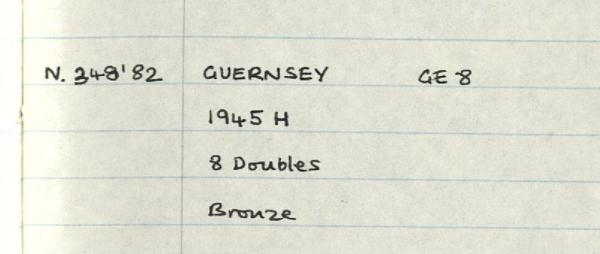 N. 348'82 GUERNSEY GE 8
1945 H
8 Doubles
Bronze